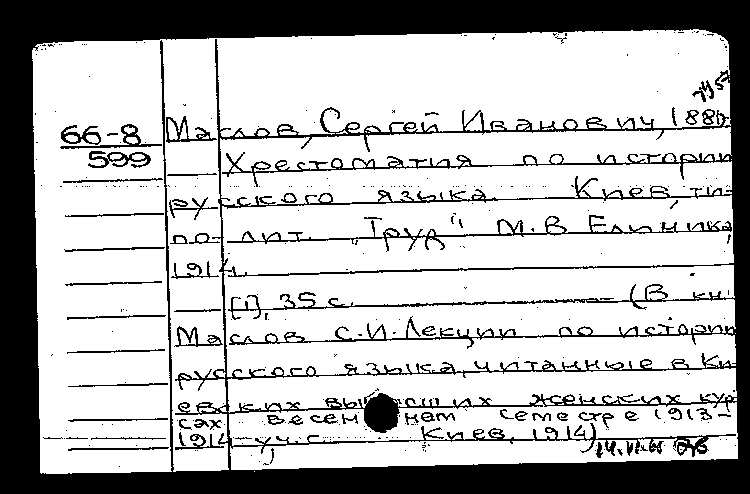 66-8 Маслов, Сергей Иванович, 1880-
599 Хрестоматия по истории
русского языка. Киев, ти-
по-лит. "Труд" М.В Елиника,
1914.
[1], 35 с. (В кн.
Маслов С.И. Лекции по истории
русского языка, читанные в Ки-
евских высших женских кур-
сах в весеннем семестре 1913-
1914 уч.г. Киев, 1914)